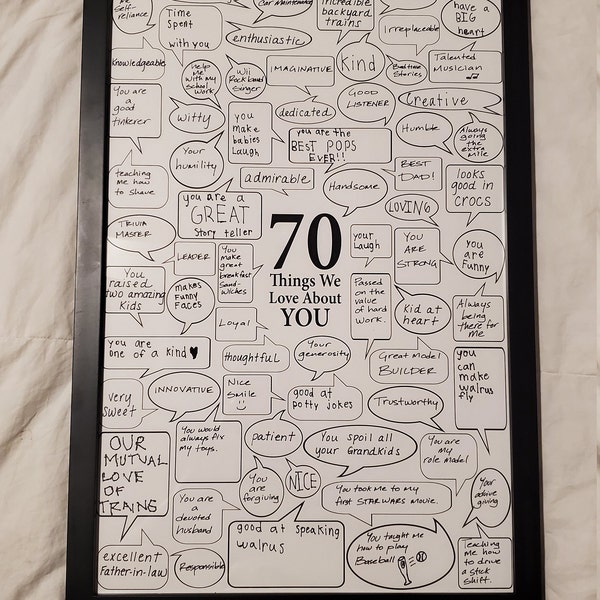 Self-
reliance
Time
Spent
with you
Car Maintenance
incredible
backyard
trains
irreplaceable
have a
BIG
heart
enthusiastic
Knowledgeable
Help
Me
with my
school
work
Wii
Rockband
Singer
IMAGINATIVE
kind
Bed time
Stories
Talented
Musician
You are
a
good
tinkerer
witty
you
make
babies
laugh
dedicated
GOOD
LISTENER
Creative
you are the
BEST POPS
EVER!!
Humble
Always
going
the
extra
mile
Your
humility
teaching
me how
to shave
admirable
Handsome
BEST
DAD!
looks
good in
CROCS
LOVING
you are a
GREAT
story teller
TRIVIA
MASTER
LEADER
You
make
great
breakfast
Sand-
wiches
70
Things We
Love About
YOU
your
Laugh
You
ARE
STRONG
you
are
Funny
You
raised
two amazing
Kids
makes
Funny
FACES
Passed
on the
value
of hard
work.
Kid at
heart
Always
being
there for
Me
Loyal
you are
one of a kind ♥
thoughtful
Your
generosity
Great Model
BUILDER
you
can
make
walrus
fly
very
sweet
INNOVATIVE
Nice
Smile
good at
potty jokes
Trustworthy
OUR
MUTUAL
LOVE
OF
TRAINS
You would
always fix
my toys.
patient
You spoil all
your Grandkids
You are my
role model
You
are
forgiving
NICE
You took me to my
first STAR WARS movie.
Your
advice
giving
You are a
devoted
husband
good at speaking
walrus
You taught me
how to play
Baseball
Teaching
me how
to drive
a stick
shift.
excellent
Father-in-law
Responsible